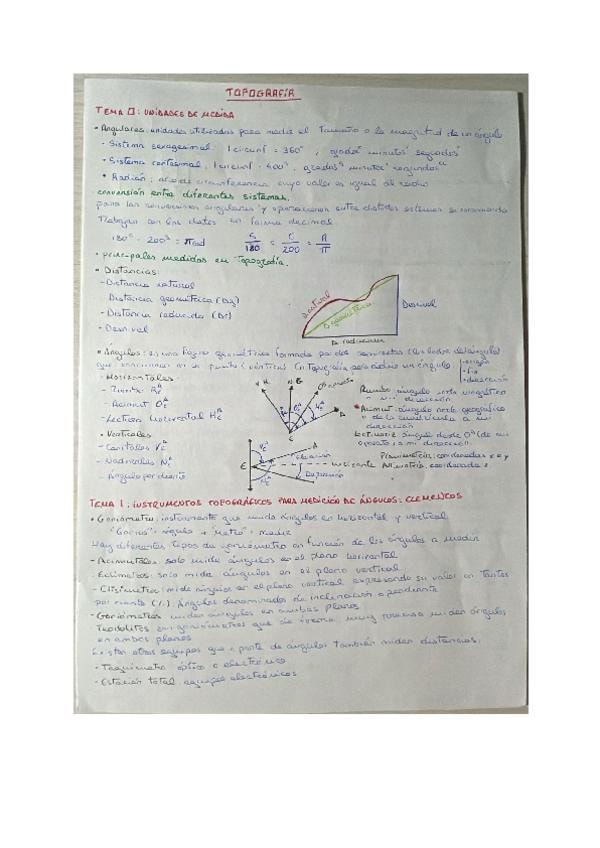 TOPOGRAFÍA
TEMA 0: UNIDADES DE MEDIDA
• Angulares: unidades utilizadas para medir el tamaño o la magnitud de un ángulo
- Sistema sexagesimal: 1 circunf = 360°, grados° minutos' segundos''
- Sistema centesimal: 1 circunf = 400ᵍ, grados minutos segundos
• Radián: arco de circunferencia cuyo valor es igual al radio
conversión entre diferentes sistemas.
para las conversiones angulares y operaciones entre distintos sistemas se recomienda
trabajar con los datos en forma decimal
180° = 200ᵍ = π rad S/180 = C/200 = R/π
• principales medidas en topografía.
• Distancias:
- Distancia natural
- Distancia geométrica (Dg)
- Distancia reducida (Dr)
- Desnivel
D natural
D geométrica
Desnivel
D reducida
• Ángulos: es una figura geométrica formada por dos semirrectas (los lados del ángulo)
que en un punto (vértice). En topografía para definir un ángulo
origen
fin
dirección
- Horizontales
- Rumbo R
- Acimut θ
- Lectura horizontal H
• Verticales
- Cenitales V
- Nadirales N
- Ángulo pendiente
A
E
Rumbo: ángulo norte magnético
a mi dirección
Acimut: ángulo norte geográfico
o de la cuadrícula a mi
dirección
Lectura: ángulo desde 0ᵍ (de mi
operatoria) a mi dirección.
Planimetría: coordenadas x e y
Altimetría: coordenada z
Elevación
Horizonte
Depresión
A
E
TEMA 1: INSTRUMENTOS TOPOGRÁFICOS PARA MEDICIÓN DE ÁNGULOS: ELEMENTOS
• Goniómetro: instrumento que mide ángulos en horizontal y vertical
"Gonios": ángulo + "metro": medir
Hay diferentes tipos de goniómetro en función de los ángulos a medir
- Acimutales: solo mide ángulos en el plano horizontal
- Eclímetros: solo mide ángulos en el plano vertical
- Clisímetro: mide ángulos en el plano vertical expresando su valor en tantos
por ciento (%). Ángulos denominados de inclinación o pendiente
- Goniómetros: miden ángulos en ambos planos
Teodolitos: son goniómetros que de forma muy precisa miden ángulos
en ambos planos
Existen otros equipos que a parte de ángulos también miden distancias.
- Taquímetro óptico o electrónico
- Estación total: equipos electrónicos